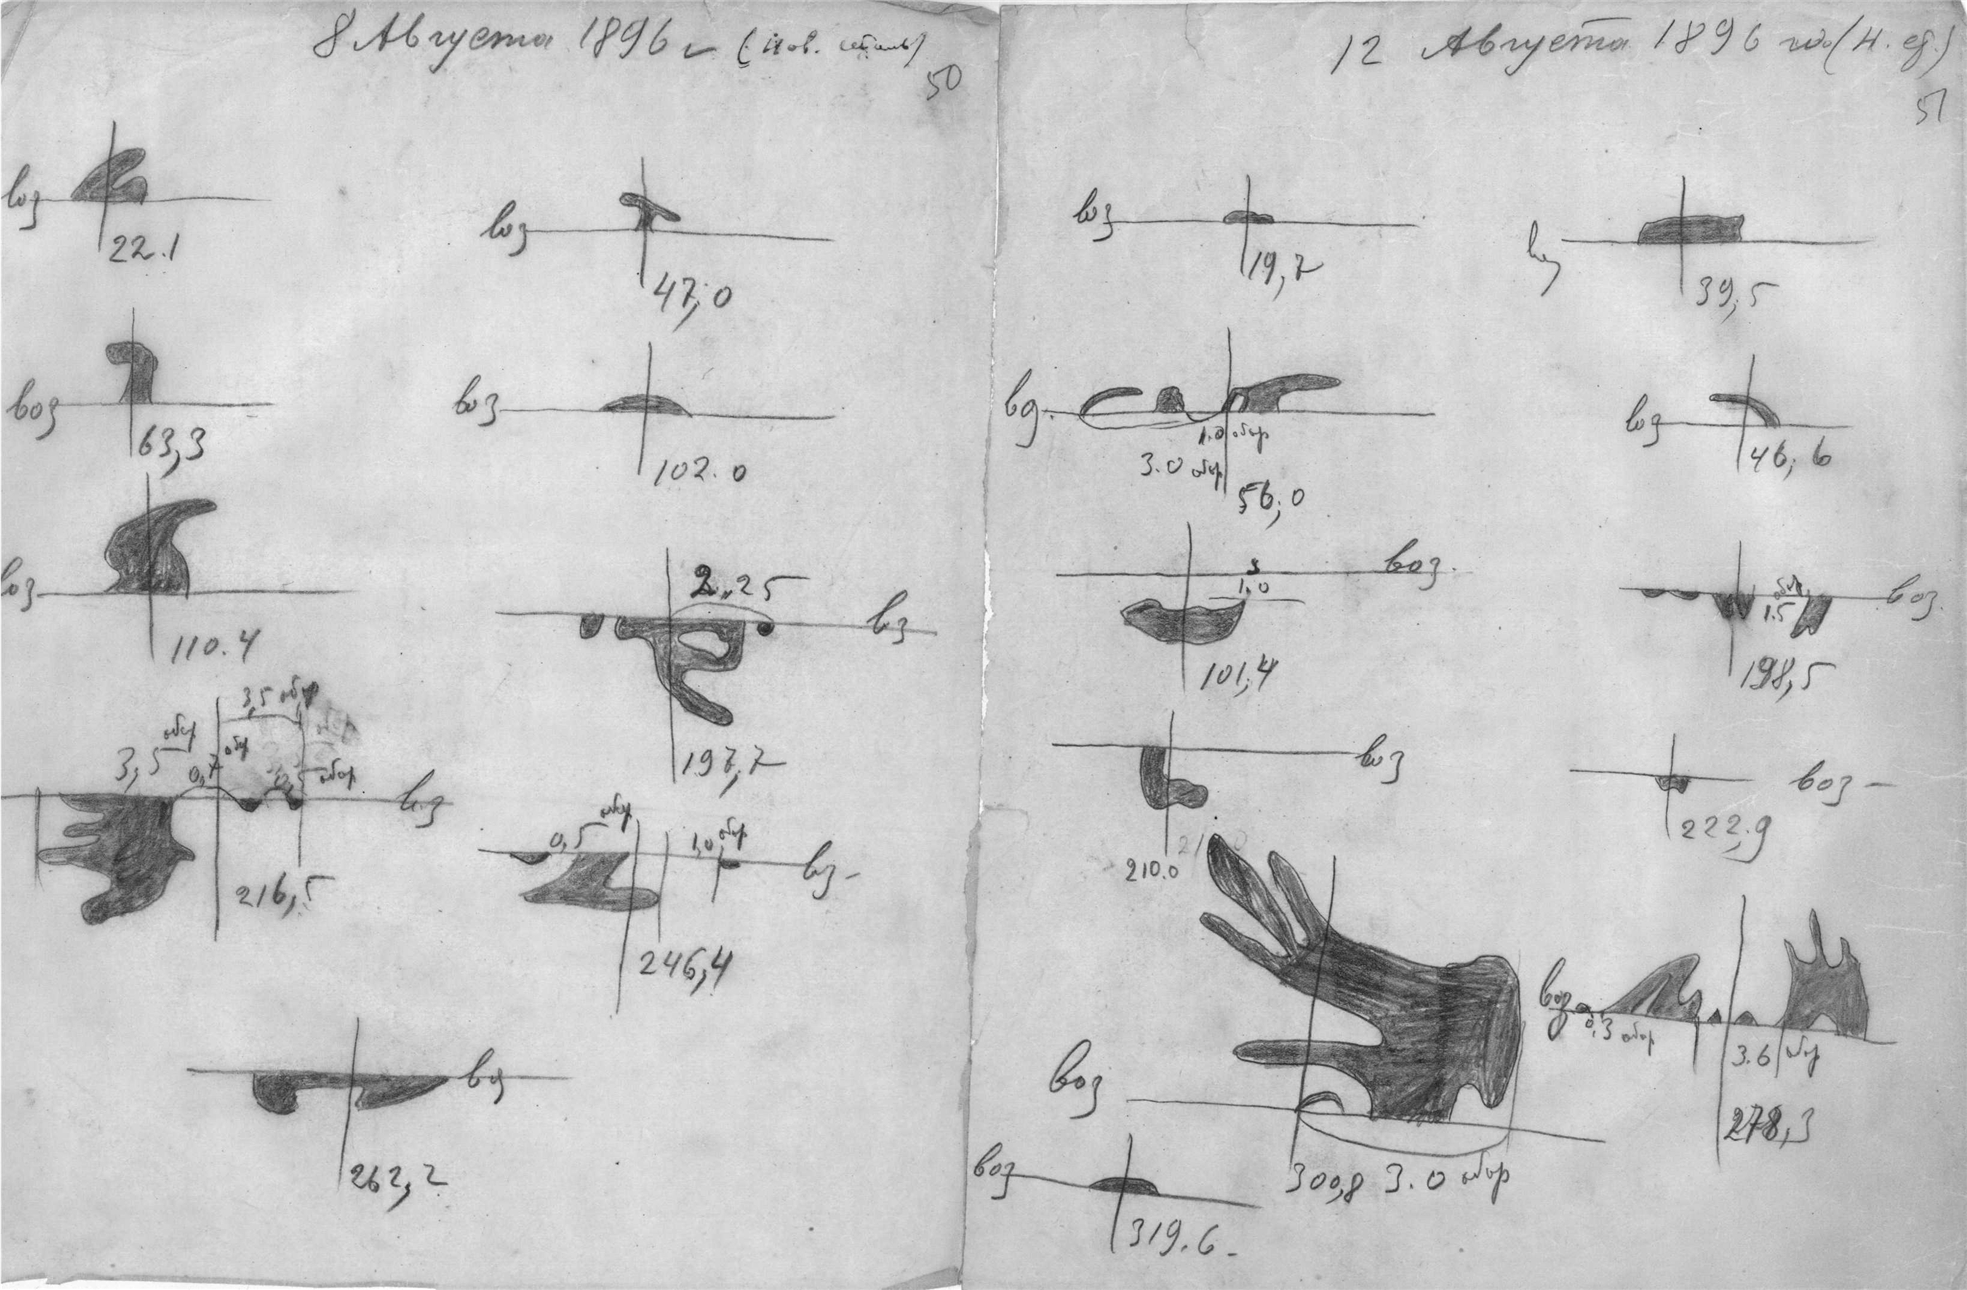 8 Августа 1896 г (Нов. стиль)
50
воз
22.1
воз
47,0
воз
63,3
воз
102.0
воз
110.4
2.25
воз
197,7
3,5 обор
3,5 обор
0,7 обор
обор
воз
216,5
0,5 обор
1,0 обор
воз
246,4
воз
262,2
12 Августа 1896 го (Н. ст.)
51
воз
19,7
воз
39,5
воз.
1.0 обор
3.0 обор
56,0
воз
46,6
воз.
1.0
101,4
обор
1.5
воз.
198,5
воз
210.0
воз
222.9
воз
0,3 обор
3.6 обор
278,3
воз
300,8 3.0 обор
воз
319.6.